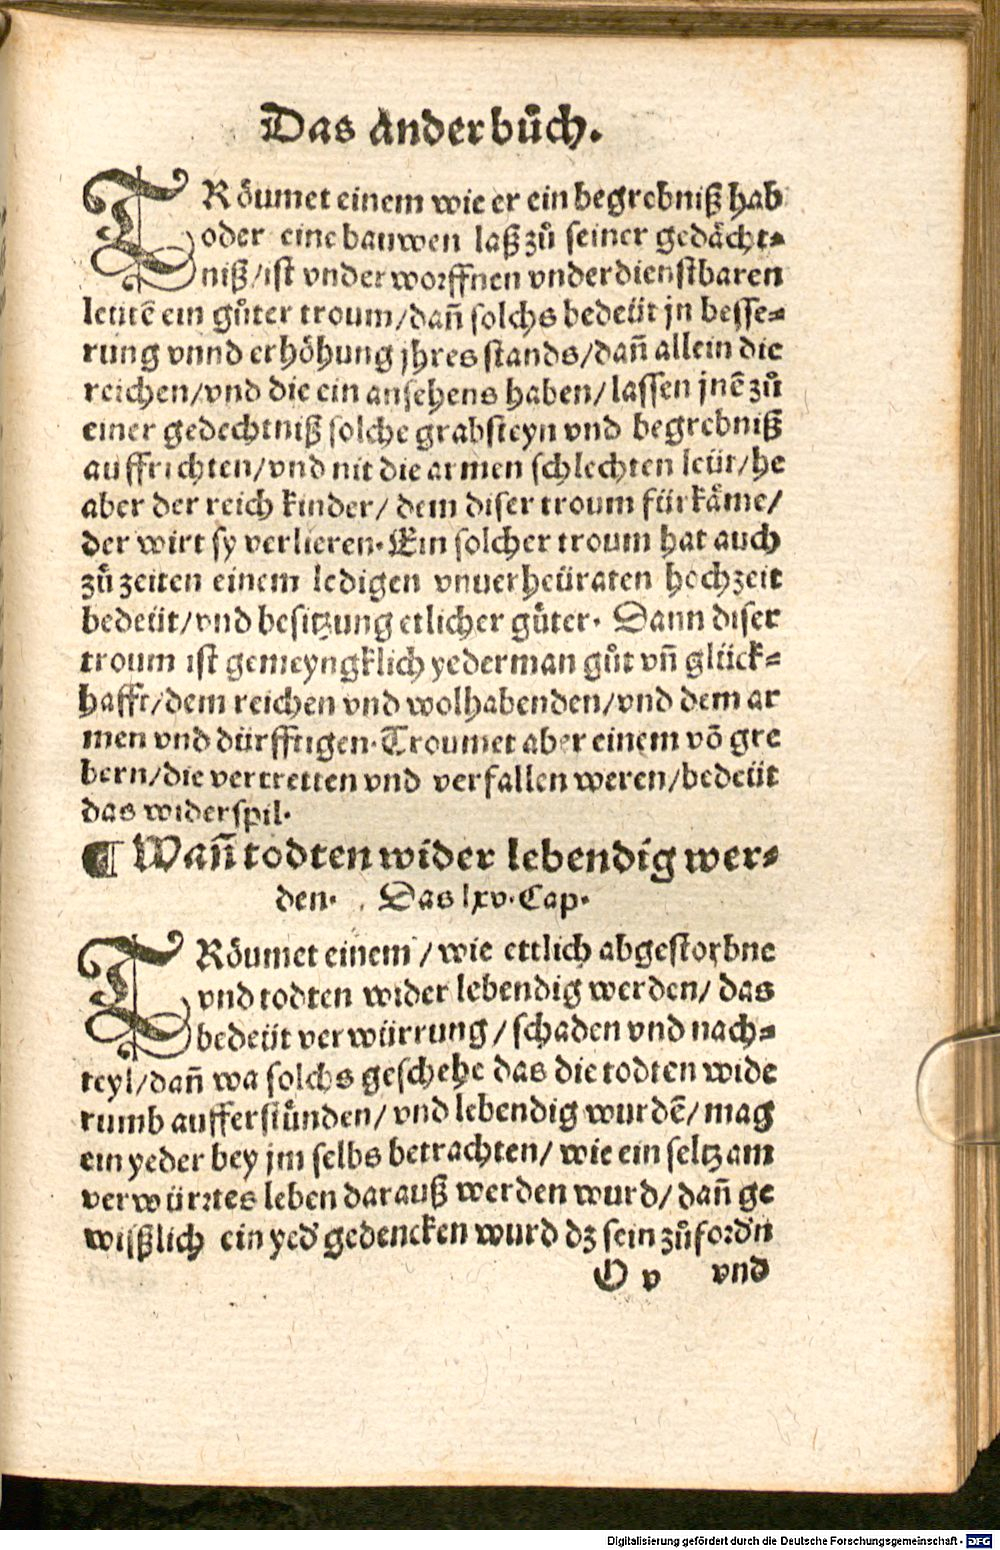 Das ander bůch.
TRöumet einem wie er ein begrebniß hab
oder eine bauwen laß zů seiner gedächt⸗
niß/ist vnder worffnen vnderdienstbaren
leütē ein gůter troum/dañ solchs bedeüt jn besse⸗
rung vnnd erhöhung jhres stands/dañ allein die
reichen/vnd die ein ansehens haben/lassen jnē zů
einer gedechtniß solche grabsteyn vnd begrebniß
auffrichten/vnd nit die armen schlechten leüt/he
aber der reich kinder/ dem diser troum fürkäme/
der wirt sy verlieren. Ein solcher troum hat auch
zů zeiten einem ledigen vnuerheüraten hochzeit
bedeüt/vnd besitzung etlicher gůter. Dann diser
troum ist gemeyngklich yederman gůt vñ glück⸗
hafft/dem reichen vnd wolhabenden/vnd dem ar
men vnd dürfftigen. Troumet aber einem vō gre
bern/die vertretten vnd verfallen weren/bedeüt
das widerspil.
¶ Wañ todten wider lebendig wer⸗
den. Das lxv. Cap.
TRöumet einem / wie ettlich abgestorbne
vnd todten wider lebendig werden/ das
bedeüt verwürrung / schaden vnd nach⸗
teyl/dañ wa solchs geschehe das die todten wide
rumb aufferstůnden/ vnd lebendig wurdē/ mag
ein yeder bey jm selbs betrachten/ wie ein seltzam
verwürrtes leben darauß werden wurd/ dañ ge
wißlich ein yed' gedencken wurd dz sein zů ford'n
O v vnd
Digitalisierung gefördert durch die Deutsche Forschungsgemeinschaft - DFG